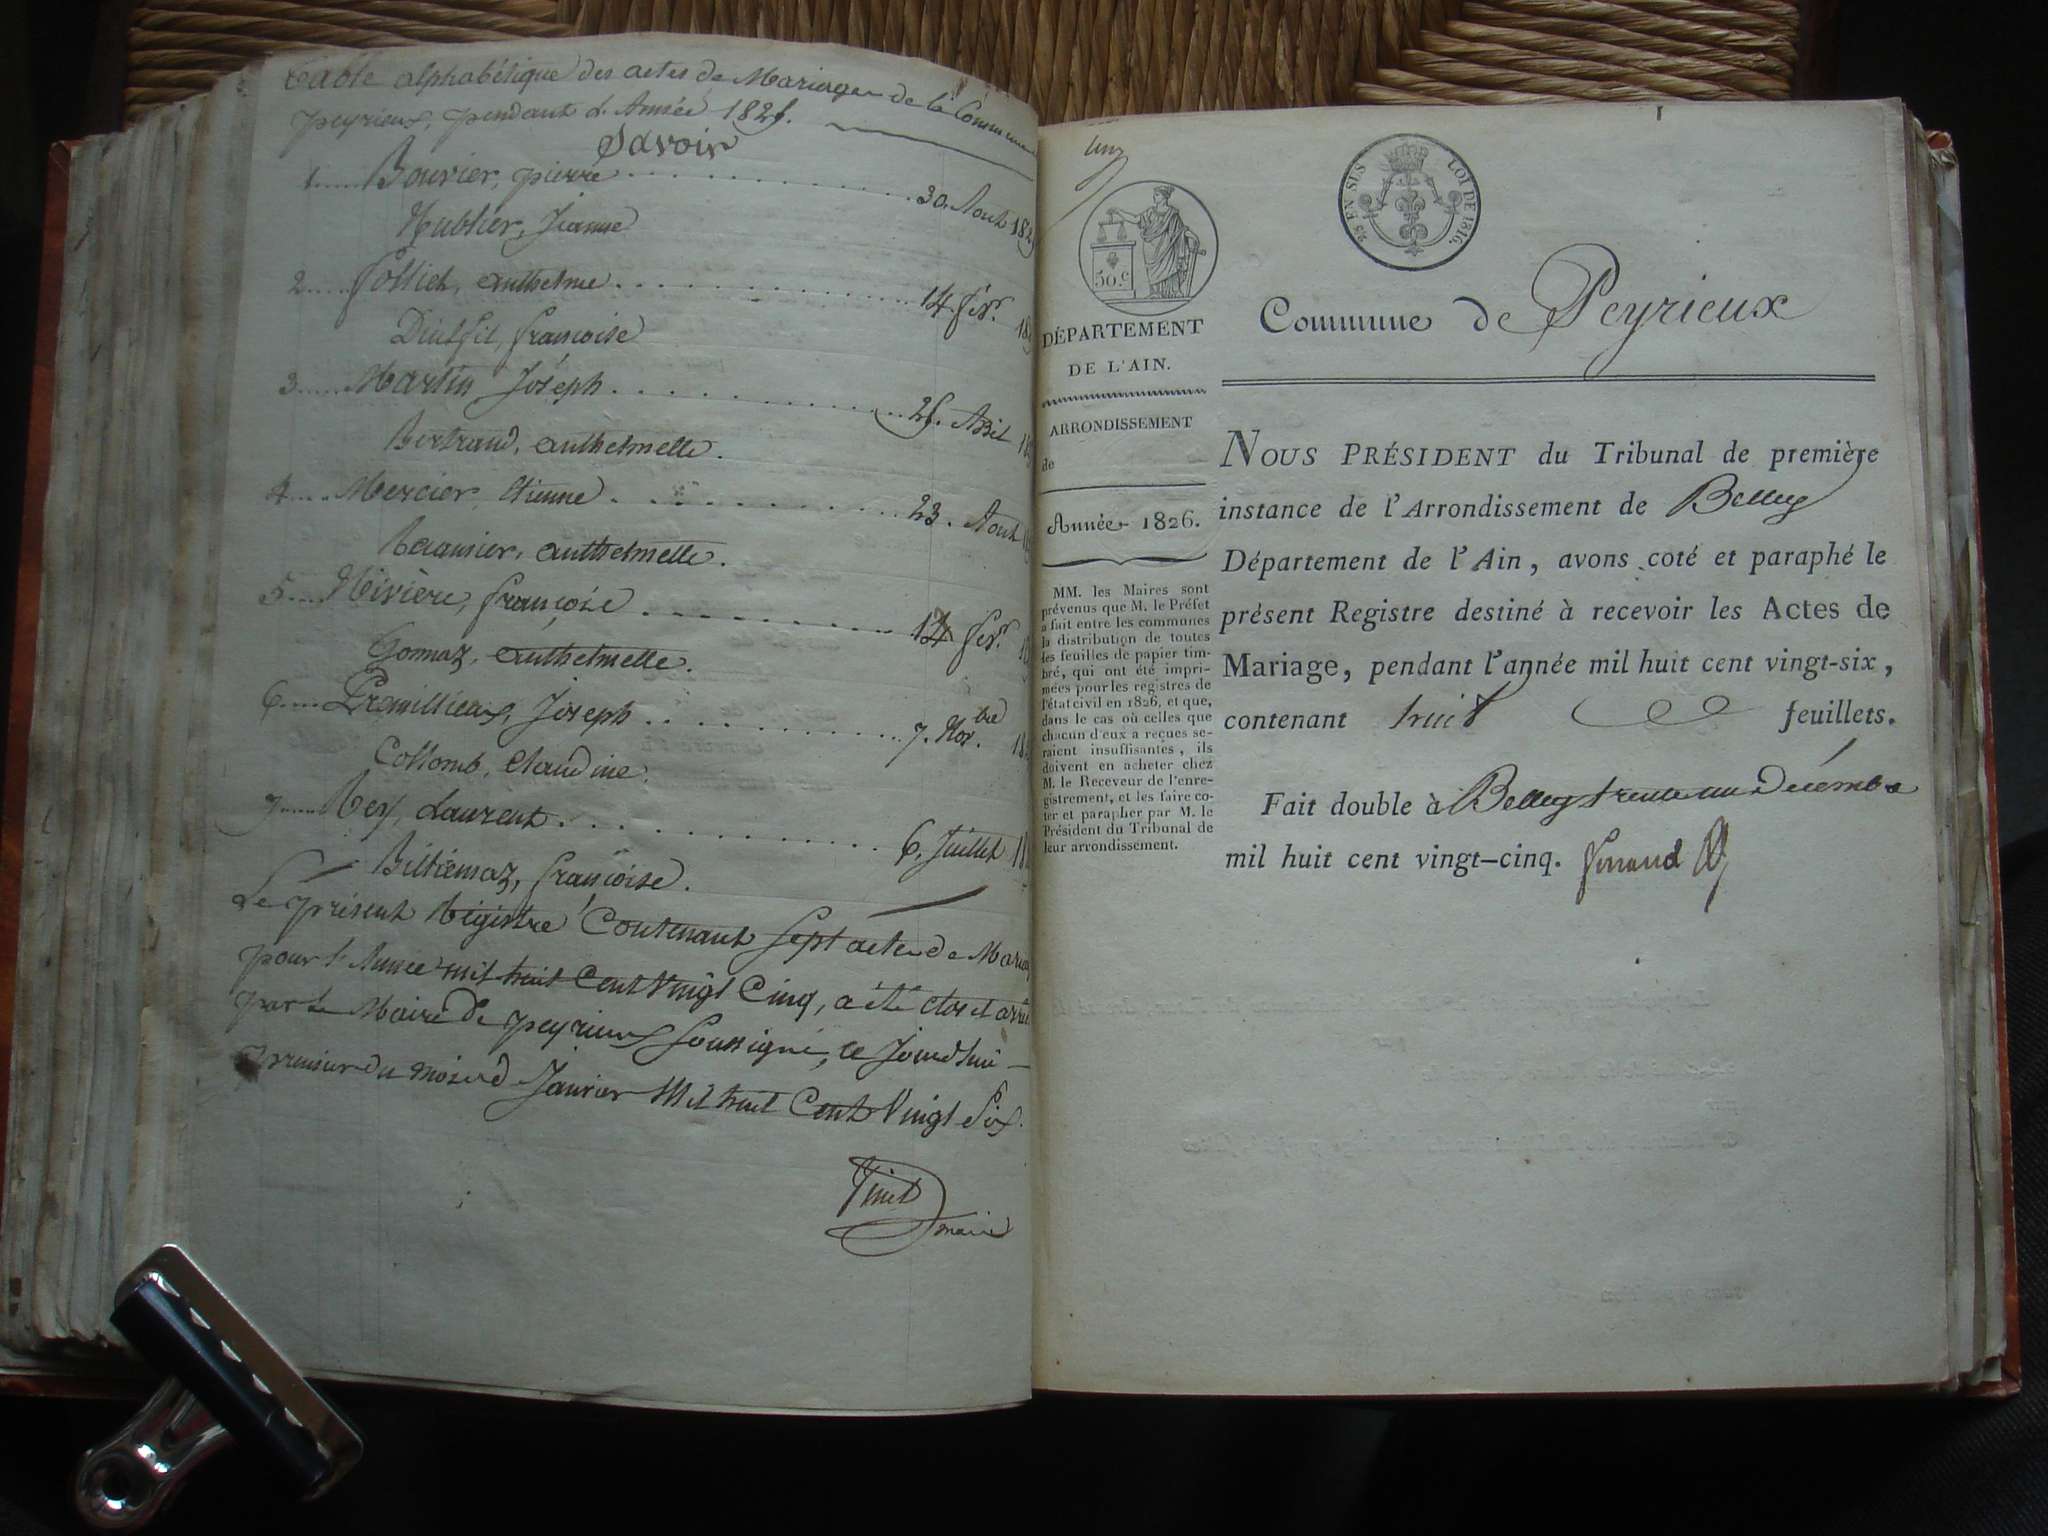 Table alphabétique des actes de Mariages de la Commune
peyrieux, pendant L'Année 1825.
Savoir
1..... Bouvier, pierre ............ 30. Aout 1825
Hublier, Jeanne
2..... Folliet, anthelme ............ 14 févr. 18
Dielfit, francoise
3..... Martin Joseph ............ 25. Abril 18
Bertrand, anthelmelle.
4.... Mercier, etienne ............ 23. Aout
anthelmelle.
5.... Rivière, françoise ............ 14 févr. 18
Gonnaz, anthelmelle.
6.... Premillieux, Joseph ............ 7. Nov.bre 18
Collomb, Claudine.
7.... Rey, Laurent ............ 6. Juillet 18
Billiémaz, francoise.
Le present Régistre Contenant Sept actes de Mariag
pour l'Année mil huit Cent Vingt Cinq, a été clos et arrê
par Le Maire de peyrieux Soussigné, ce Jourd'hui
premier du mois de Janvier Mil huit Cent Vingt Six.
maire
un
25 EN SUS
LOI DE 1816.
50.c
DÉPARTEMENT
DE L'AIN.
ARRONDISSEMENT
de
Année 1826.
MM. les Maires sont
prévenus que M. le Préfet
a fait entre les communes
la distribution de toutes
les feuilles de papier tim-
bré, qui ont été impri-
mées pour les registres de
l'état civil en 1826, et que,
dans le cas où celles que
chacun d'eux a reçues se-
raient insuffisantes, ils
doivent en acheter chez
M. le Receveur de l'enre-
gistrement, et les faire co-
ter et parapher par M. le
Président du Tribunal de
leur arrondissement.
Commune de Peyrieux
NOUS PRÉSIDENT du Tribunal de première
instance de l'Arrondissement de Belley
Département de l'Ain, avons coté et paraphé le
présent Registre destiné à recevoir les Actes de
Mariage, pendant l'année mil huit cent vingt-six,
contenant huit feuillets.
Fait double à Belley trente un Décembre
mil huit cent vingt-cinq.